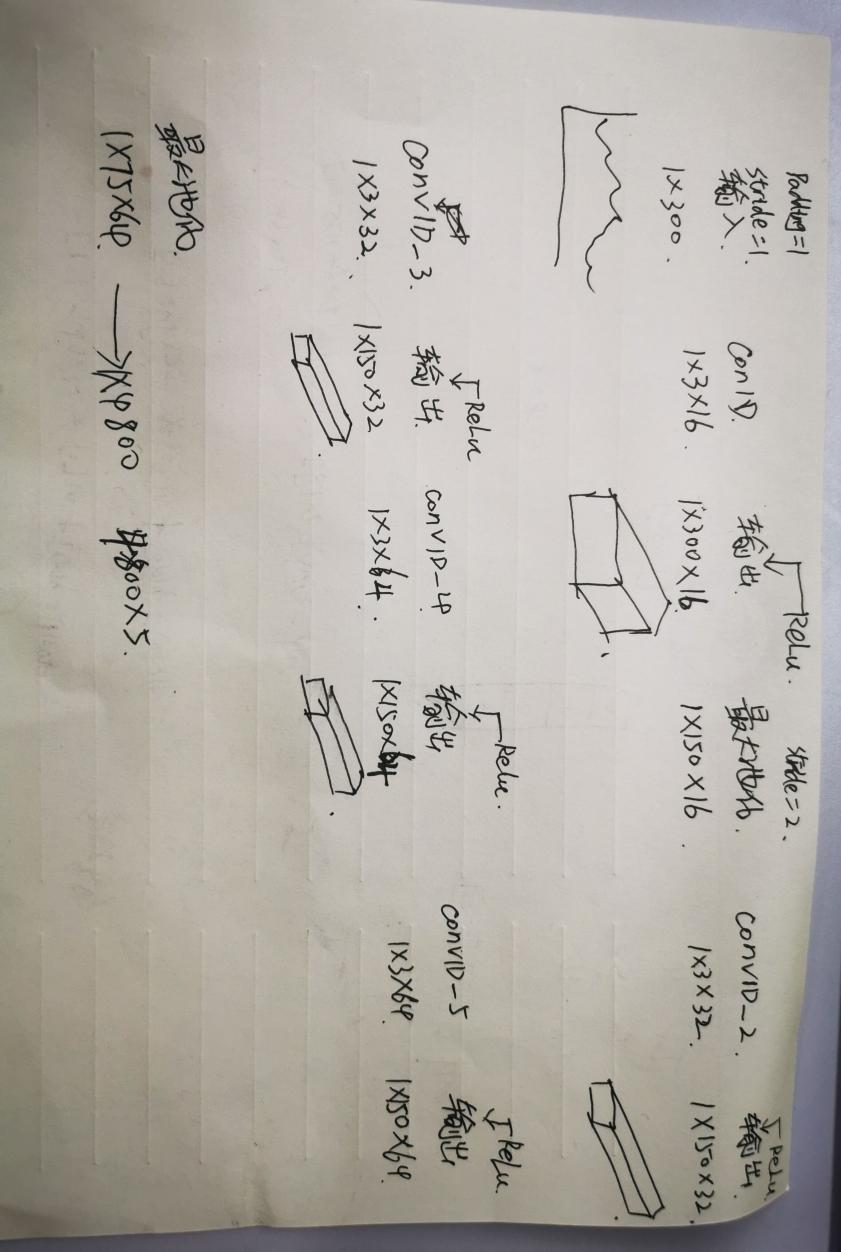 Padding=1
stride=1.
输入.
1×300.
Con1D.
1×3×16.
ReLu.
输出.
1×300×16.
stride=2.
最大池化.
1×150×16.
Conv1D_2.
1×3×32.
ReLu
输出.
1×150×32.
Conv1D_3.
1×3×32.
ReLu
输出.
1×150×32
Conv1D_4
1×3×64.
ReLu.
输出
1×150×64
Conv1D_5
1×3×64.
ReLu
输出
1×150×64
最大池化.
1×75×64. → 1×4800 4800×5.